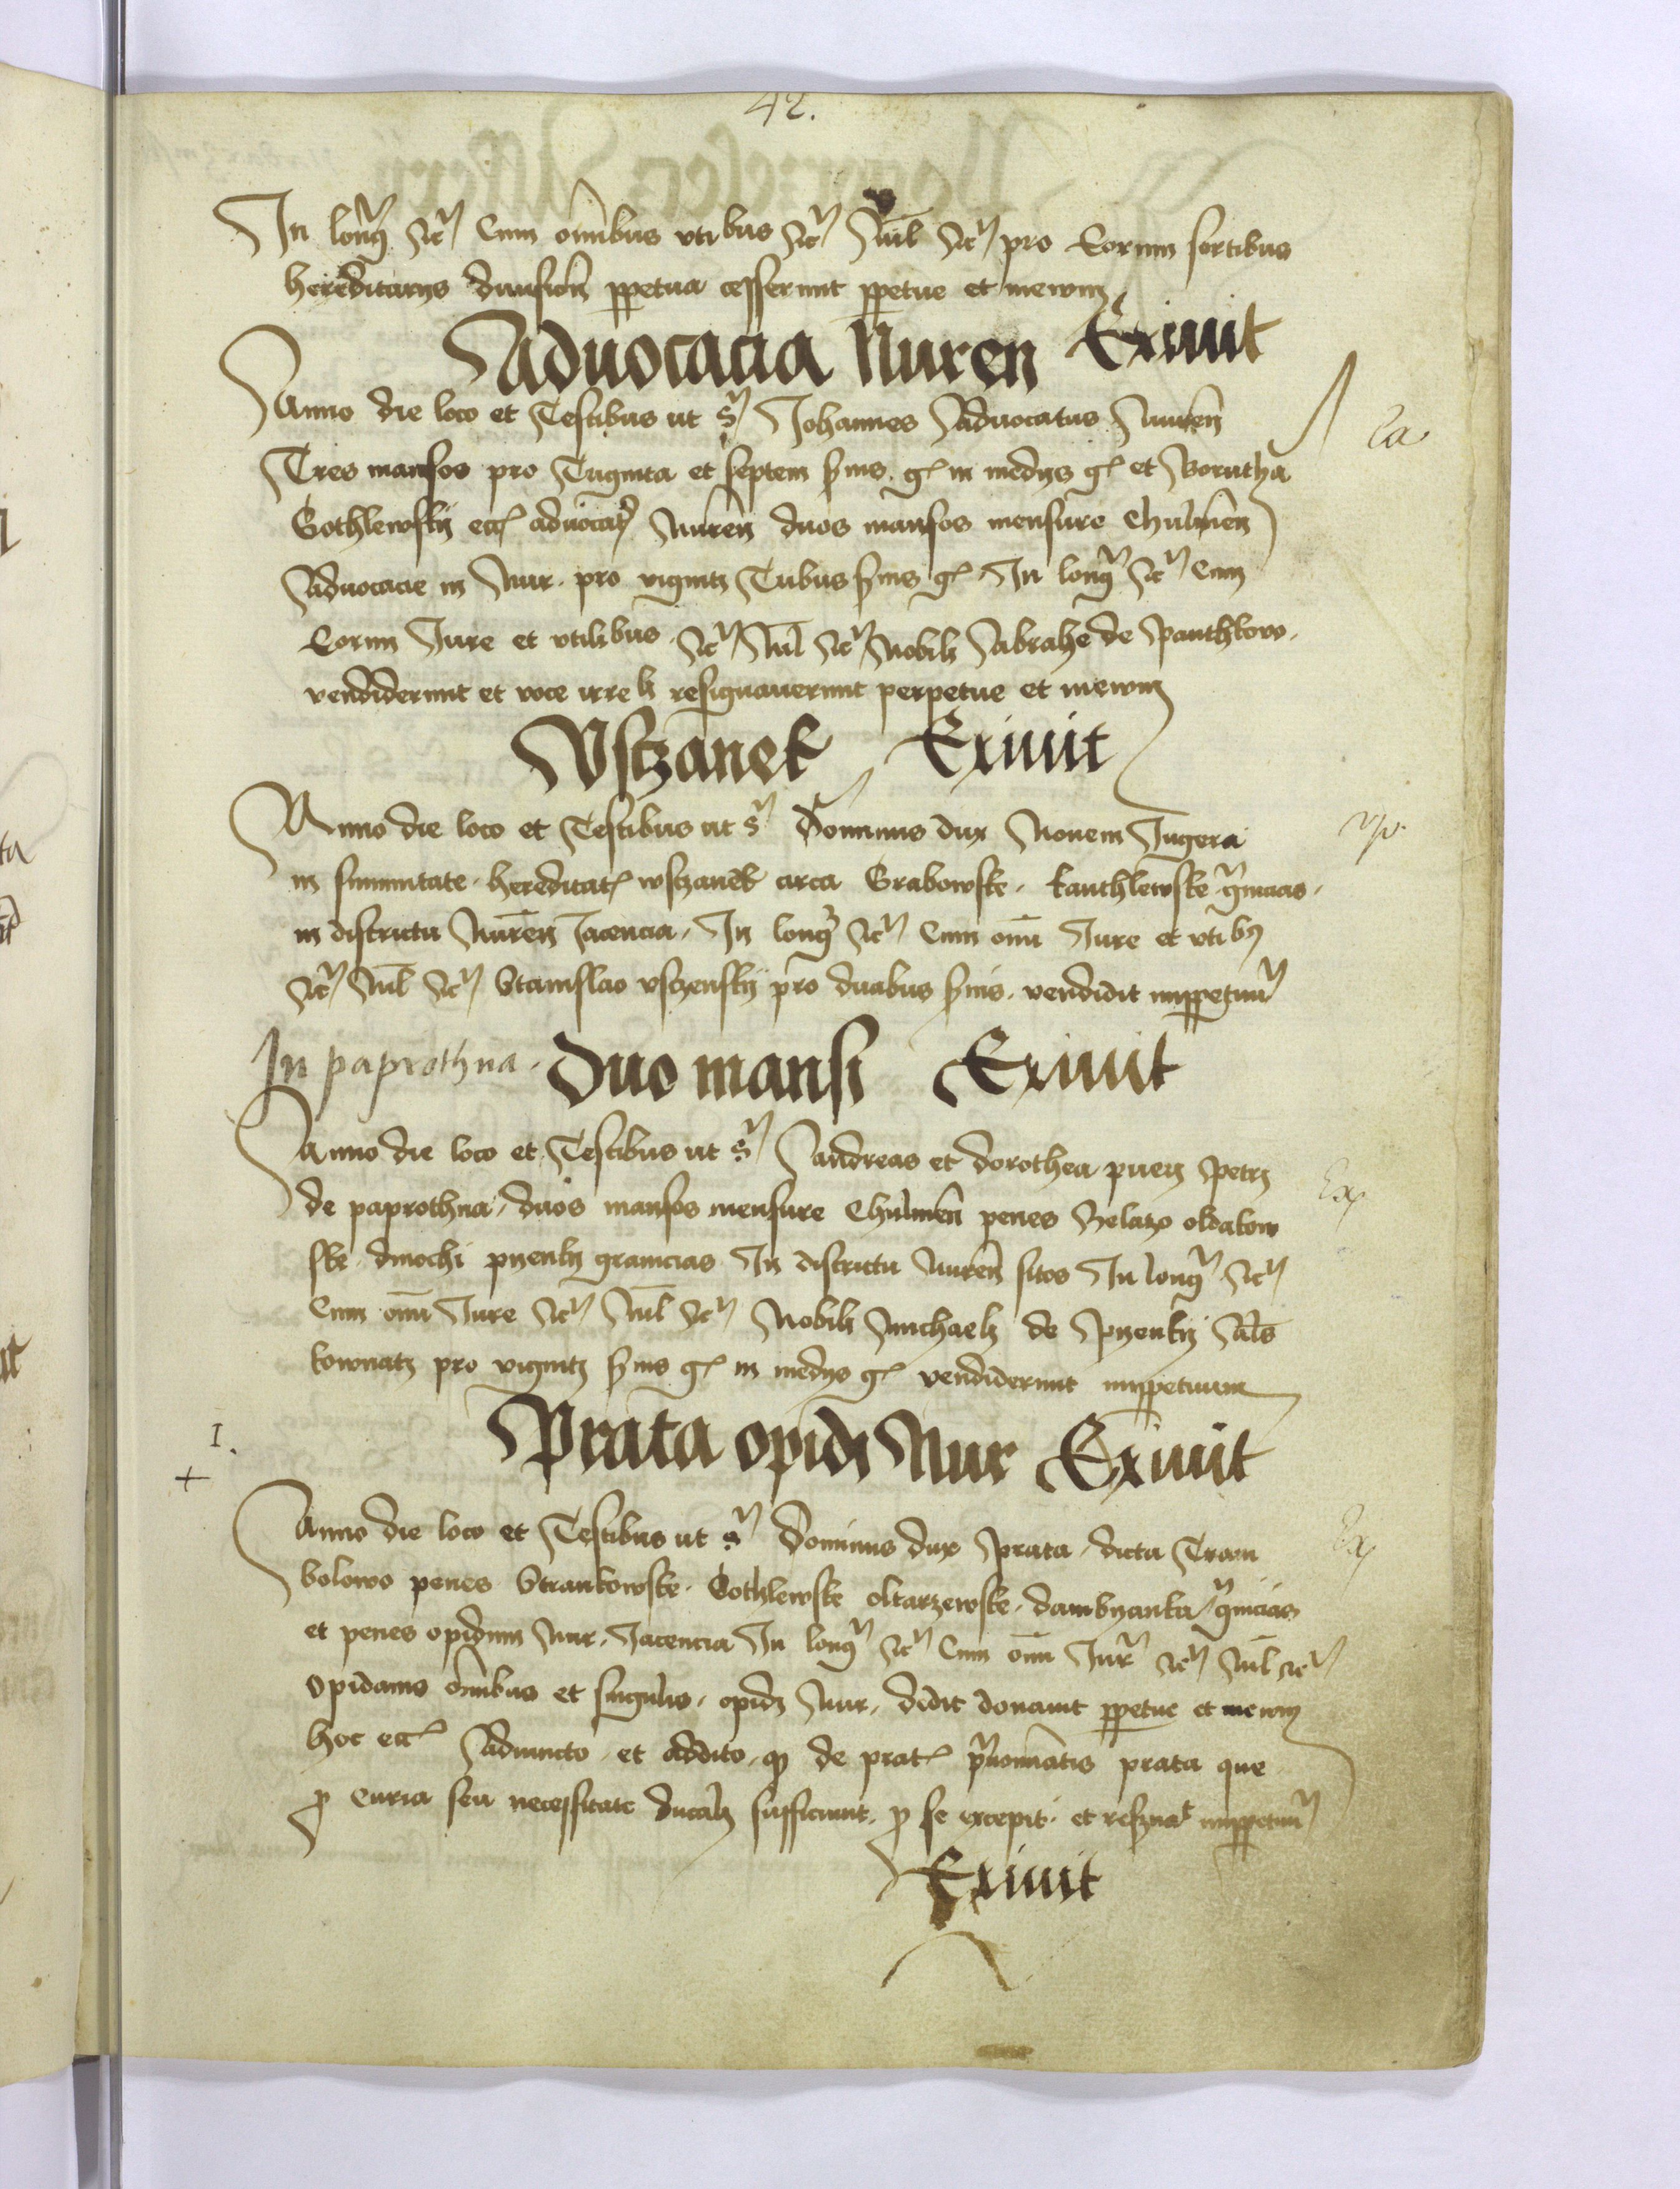 42.
In long etc Cum omnibus vtibus etc Nul etc pro Eorum sortibus
hereditarys diuision ppetua cesserunt ppetue et inewm
Aduocacia Nuren Exiuit
Anno die loco et Testibus ut s Johannes Aduocatus Nuren
Ca
Tres mansos pro Triginta et septem sxms. gr in medys gr et Borutha
Gothlewsky ecr aduocat Nuren duos mansos mensure Chulmen
Aduocacie in Nur. pro viginti Tribus sxms gr In long etc Cum
Eorum Jure et vtilibus etc Nul etc Nobili Abrahe de Panthkow.
vendiderunt et voce irreli resignauerunt perpetue et inewm
Wszanek Exiuit
Anno die loco et Testibus ut s Dominus dux Nouem Jugera
in summitate hereditat wszanek circa Grabowske. kauthlewske gnicias.
in districtu Nuren Jacencia, In long etc Cum omi Jure et vtibus
etc Nul etc Stanislao vszensky pro duabus sxms. vendidit inppetuu
In paprothna. Duo mansi Exiuit
Anno die loco et Testibus ut s Andreas et dorothea puery Petri
Ex
de paprothna, duos mansos mensure Chulmen penes Zelazo oldakow
ske dmochi pyenky granicias In districtu Nuren sitos In long etc
Cum omi Jure etc Nul etc Nobili Michaeli de Pyenky Als
kownatz pro viginti sxms gr in medys gr vendiderunt inppetuum
I.
+
Prata opidi Nur Exiuit
Anno die loco et Testibus ut s Dominus dux Prata, dicta Tron
Ex
bolowo penes Strankowske. Cothlewske oltarzewske. dambycanka gnicias
et penes opidum Nur. Jacencia In long etc Cum omi Jur etc Nul etc
Opidanis omibus et singulis, opidi Nur, dedit donauit ppetue et inewm
hoc ecr Adiuncto, et addito, q de prat prnominatis prata que
p Curia seu necessitate ducali sufficiunt. p se excepit. et resruat inppetuu
Exiuit